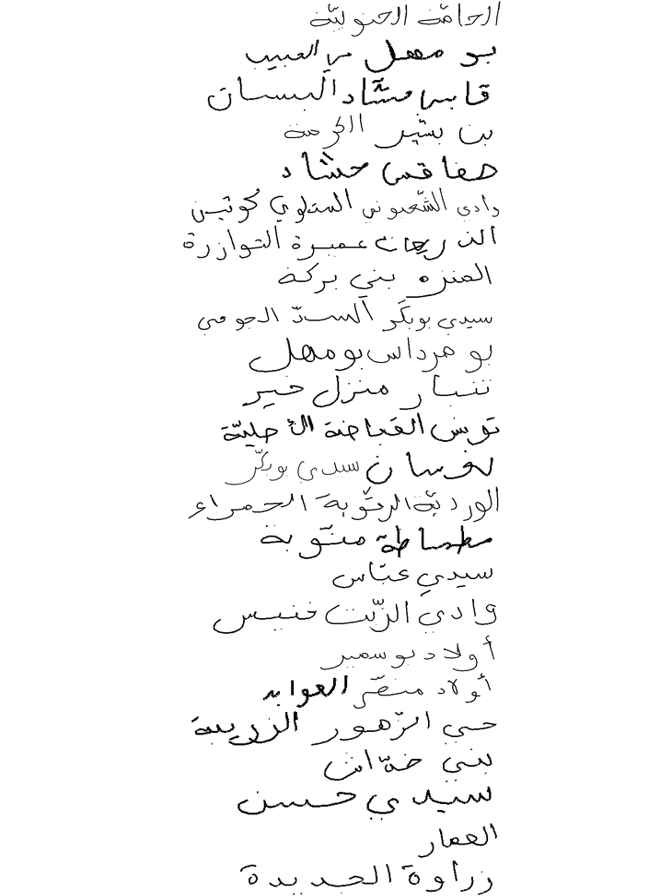 الحامّة الجنوبيّة
بو سهل حي الحبيب
قابس حشّاد البستان
بن بشير الكرمة
صفاقس حشاد
وادي الشّعبوني المتلوي كوتين
الذريعات عميرة التوازرة
المنزه بني بركة
سيدي بوبكر السدّ الجومي
بو مرداس بو سهل
شنبار منزل خير
تونس القباضة الأصليّة
نوسان سيدي بوبكّر
الورديّة الرتّوبة الحمراء
مطماطة منّوبة
سيدي عبّاس
وادي الزّيت فنيس
أولاد بوسمير
أولاد منصّر العوابد
حي الزّهور الزريبة
بني خيّار
سيدي حسن
العمار
زراوة الجديدة